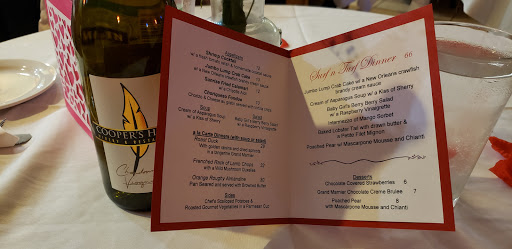 COOPER'S H
Appetizers
Shrimp Cocktail 12
w/a fresh tomato salsa & homemade cocktail sauce
Jumbo Lump Crab Cake
w/a New Orleans crawfish brandy cream sauce
Sesame Fried Calamari
w/a Chipotle Aioli
Charcuterie Combo
Soup
Cream of Asparagus Soup
w/a Kiss of Sherry
Salad
w/a Raspberry Vinaigrette
a la Carte Dinners (with soup or salad)
Roast Duck
With golden raisins and dried apricots
in a Gingered Grand Marnier
Frenched Rack of Lamb Chops
with a Wild Mushroom Couscous
Orange Roughy Almandine
Pan Seared and served with Browned Butter
Sides
Chef's Scalloped Potatoes &
Roasted Gourmet Vegetables in a Parmesan Cup
Surf n Turf Dinner 66
Jumbo Lump Crab Cake w/a New Orleans crawfish
brandy cream sauce
Cream of Asparagus Soup w/ a Kiss of Sherry
Baby Girl's Berry Berry Salad
w/a Raspberry Vinaigrette
Intermezzo of Mango Sorbet
Baked Lobster Tail with drawn butter &
a Petite Filet Mignon
Poached Pear w/ Mascarpone Mousse and Chianti
Desserts
Chocolate Covered Strawberries 6
Grand Marnier Chocolate Creme Brulee 7
Poached Pear 8
with Mascarpone Mousse and Chianti